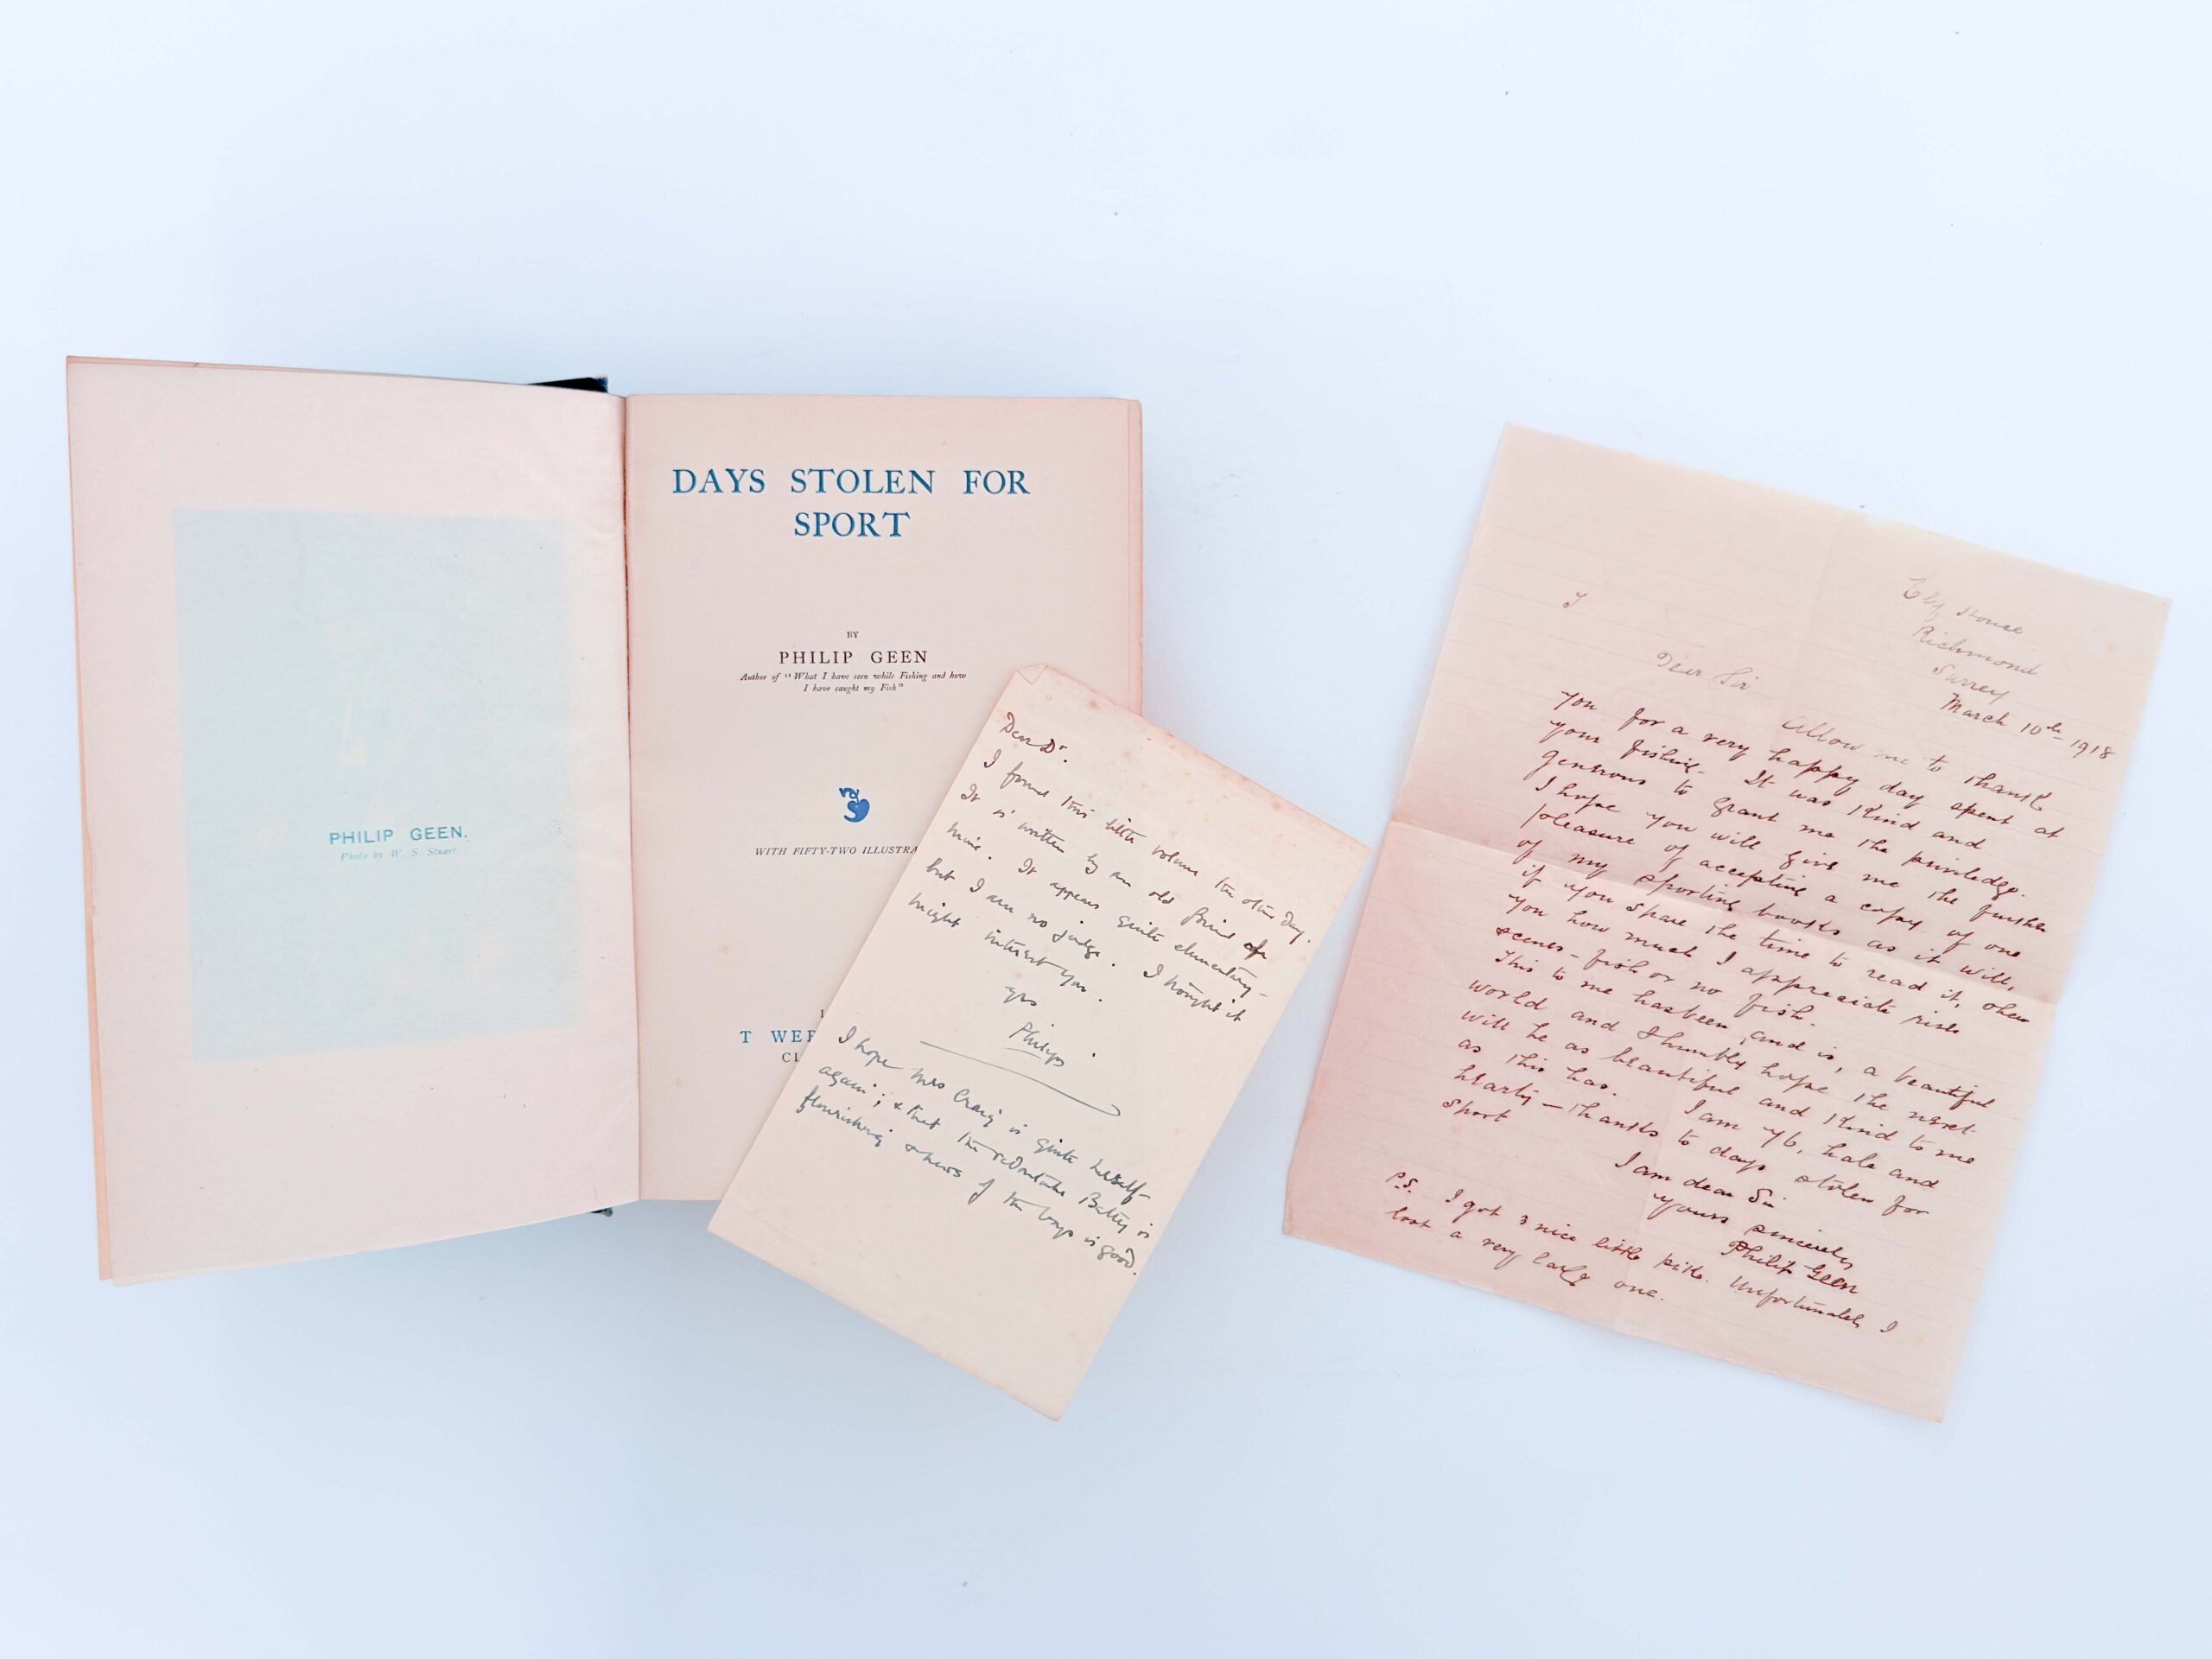 PHILIP GEEN.
Photo by W. S. Stuart.
DAYS STOLEN FOR
SPORT
BY
PHILIP GEEN
Author of "What I have seen while Fishing and how
I have caught my Fish"
WITH FIFTY-TWO ILLUSTRA
T WER
CL
Dear Dr.
I found this little volume the other day.
It is written by an old friend of
mine. It appears quite elementary -
but I am no judge. I thought it
might interest you.
Yrs
Philips.
I hope Mrs Craig is quite herself
again; & that the redoubtable Betty is
flourishing & news of the boys is good.
Ely House
Richmond
Surrey
March 10th 1918
Dear Sir
Allow me to thank
you for a very happy day spent at
your fishing. It was kind and
generous to grant me the priviledge.
I hope you will give me the further
pleasure of accepting a copy of one
of my sporting books as it will,
if you spare the time to read it, show
you how much I appreciate river
scenes - fish or no fish.
This to me has been, and is, a beautiful
world and I humbly hope the next
will be as beautiful and kind to me
as this has. I am 76, hale and
hearty - thanks to days stolen for
sport
I am dear Sir
yours sincerely
Philip Geen
P.S. I got 3 nice little pike. Unfortunately I
lost a very large one.